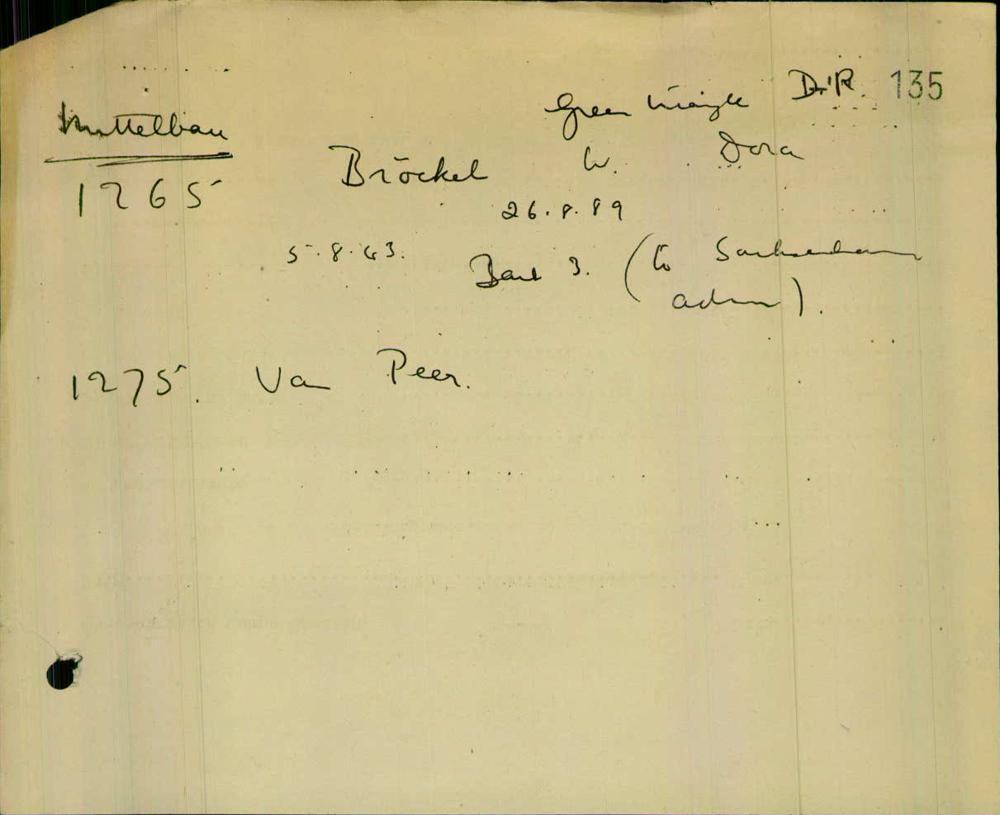 Green triangle D.R. 135
Mittelbau
Bröckel W. Dora
1265
26.8.89
5.8.43. (to Sachsenhausen
3. adm).
1275. Van Peer.